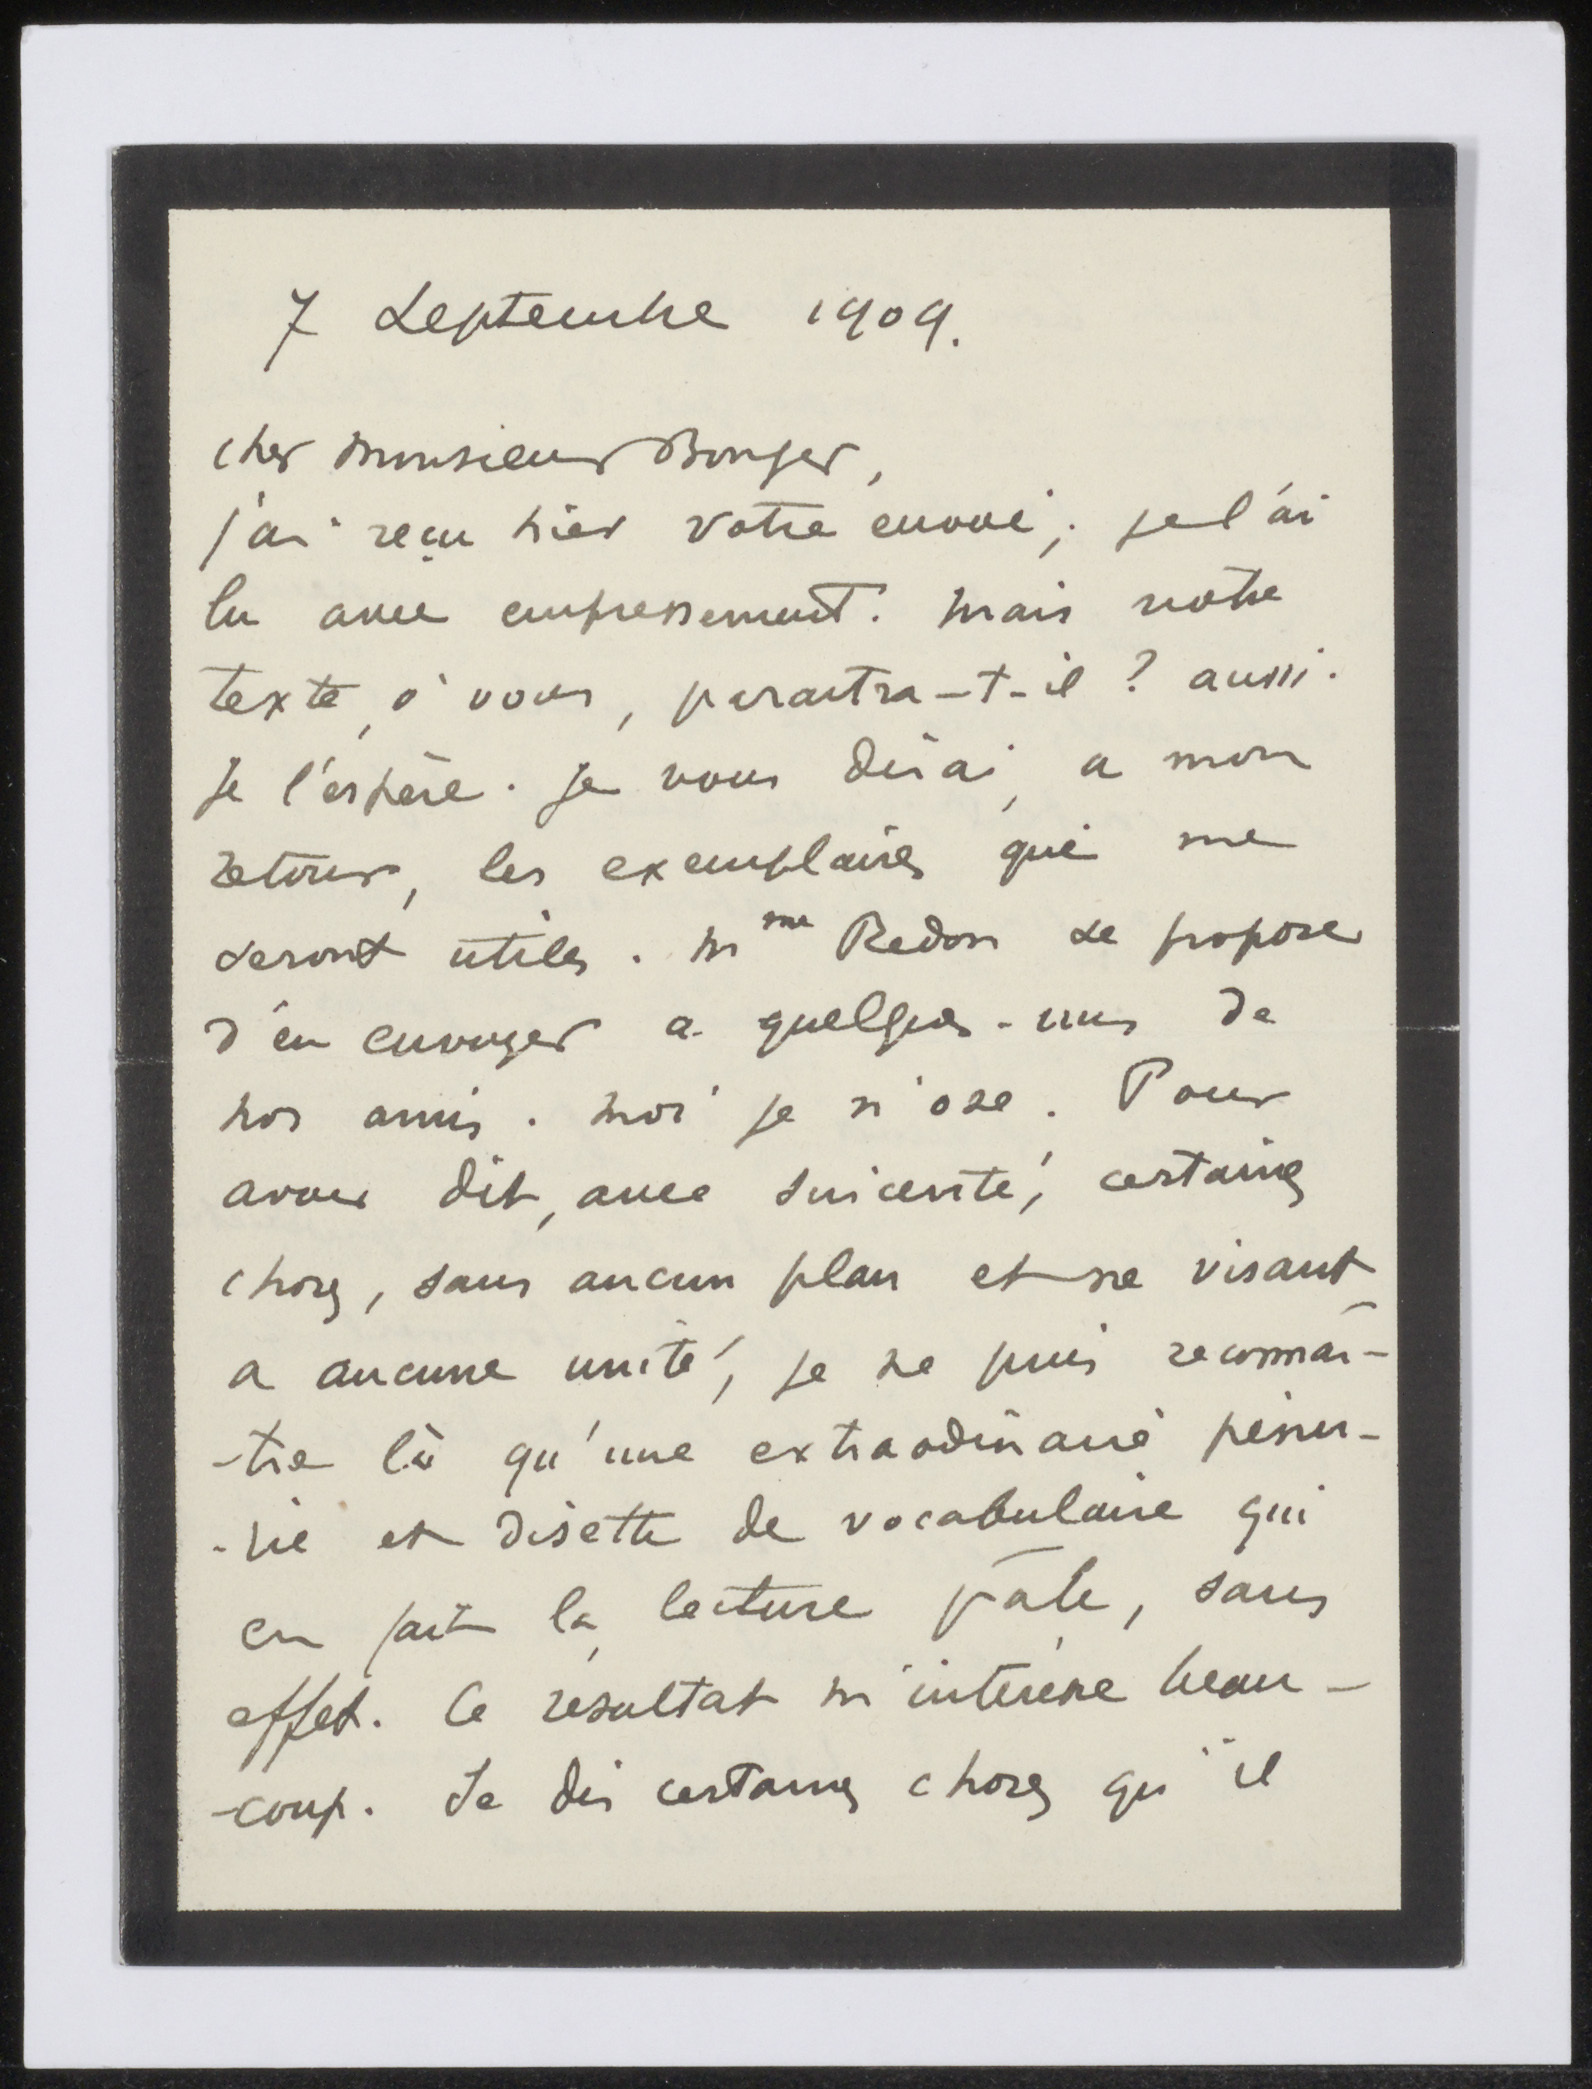 7 Septembre 1909.
cher Monsieur Bonger,
j'ai reçu hier votre envoi, je l'ai
lu avec empressement. Mais votre
texte, à vous, paraitra-t-il ? aussi.
Je l'espère. Je vous dirai, a mon
retour, les exemplaires qui me
seront utiles. Mme Redon se propose
d'en envoyer a quelques-uns de
nos amis. Moi je n'ose. Pour
avoir dit, avec sincerité, certaines
choses, sans aucun plan et ne visant
a aucune unité, je ne puis reconnaî-
-tre là qu'une extraodinaire pénu-
-rie et disette de vocabulaire qui
en fait la lecture pâle, sans
effet. Ce résultat m'intéresse beau-
-coup. Je dis certaines choses qu'il